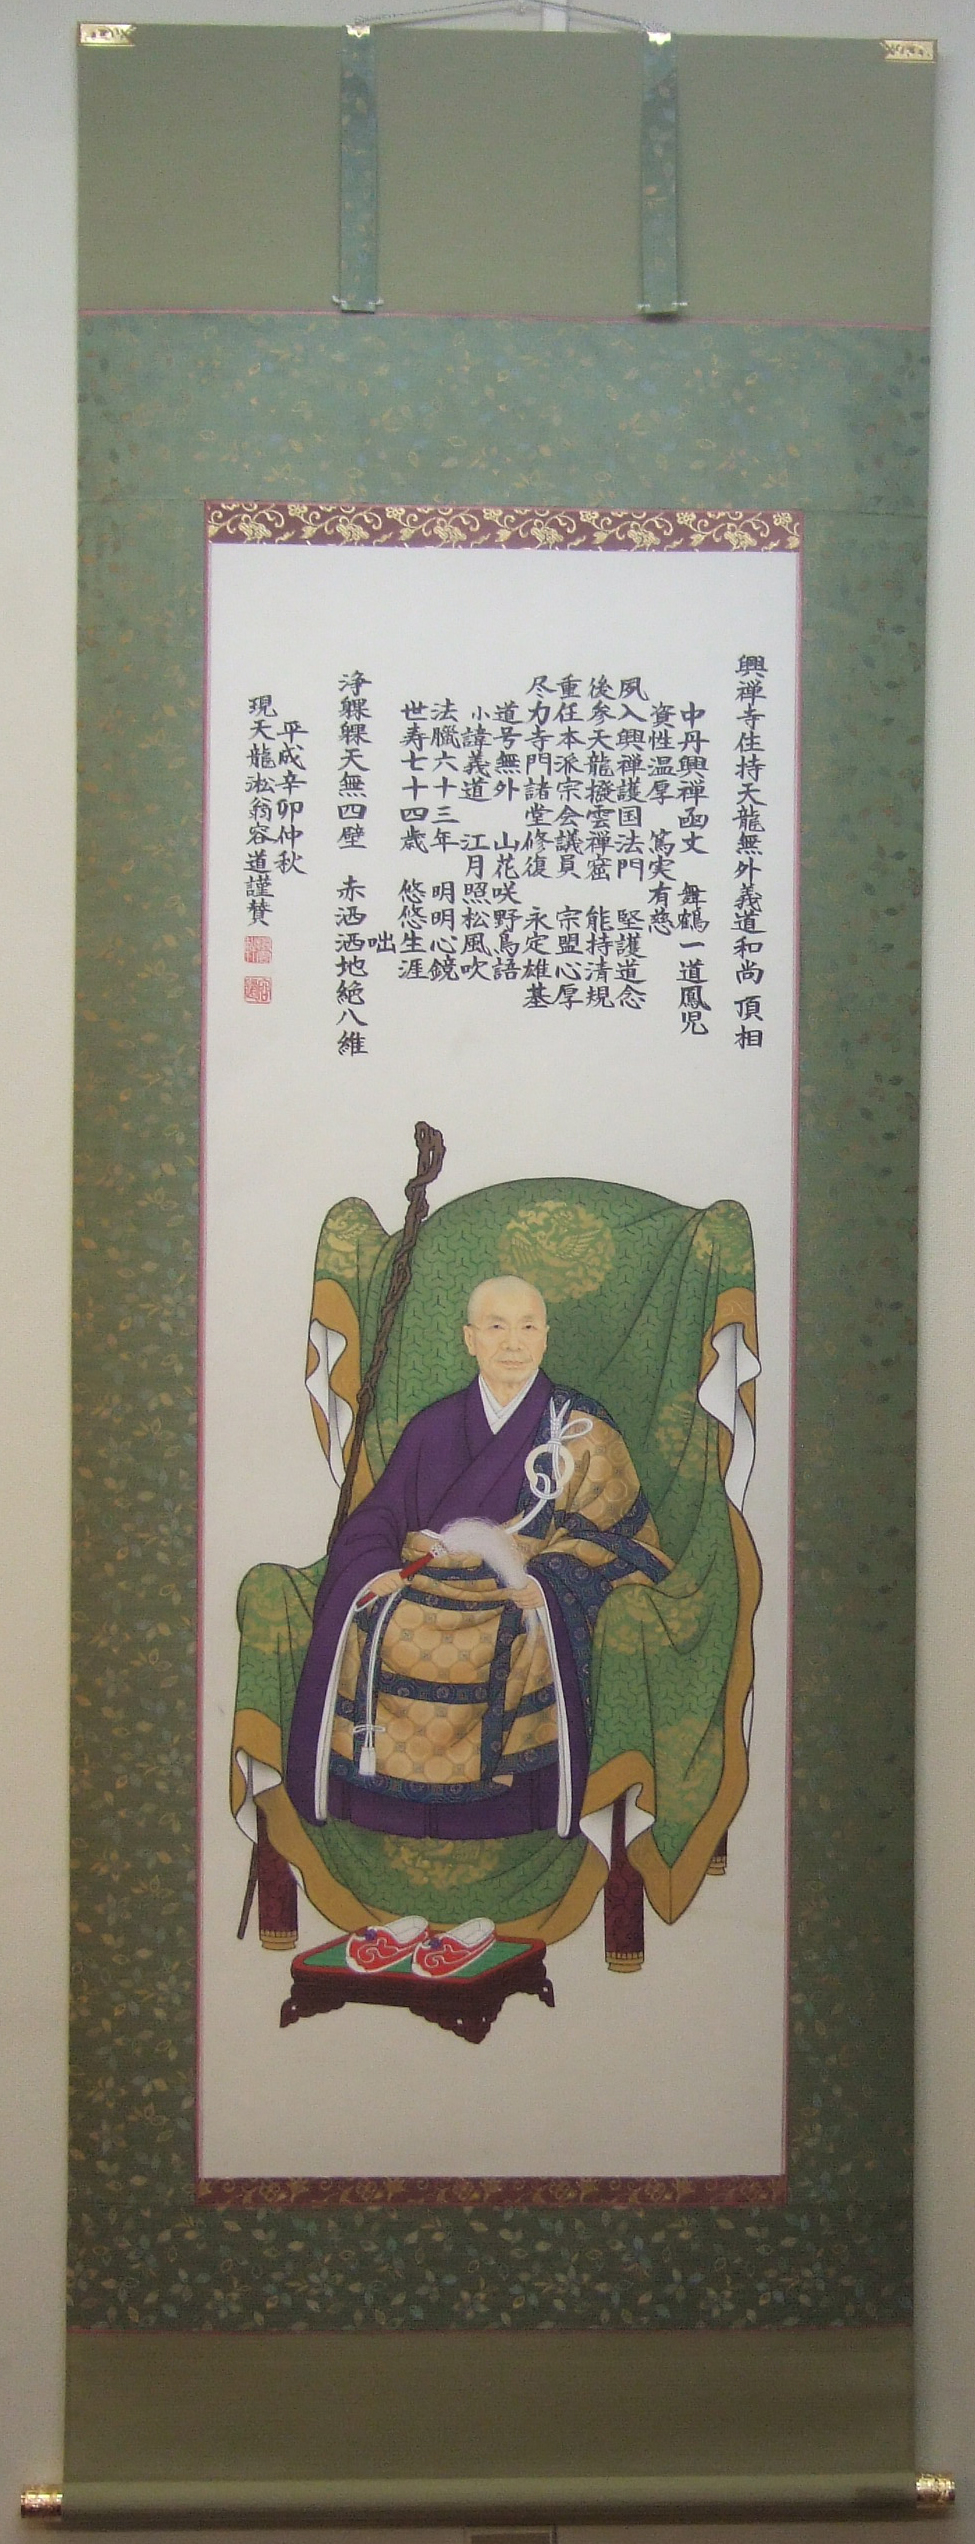 興禅寺住持天龍無外義道和尚 頂相
中丹興禅函丈 舞鶴一道鳳児
資性温厚 篤実有慈
夙入興禅護国法門 堅護道念
後参天龍撥雲禅窟 能持清規
重任本派宗会議員 宗盟心厚
尽力寺門諸堂修復 永定雄基
道号無外 山花咲野鳥語
小諱義道 江月照松風吹
法臘六十三年 明明心鏡
世寿七十四歳 悠悠生涯
咄
浄躶躶天無四壁 赤洒洒地絶八維
平成辛卯仲秋
現天龍淞翁容道謹賛